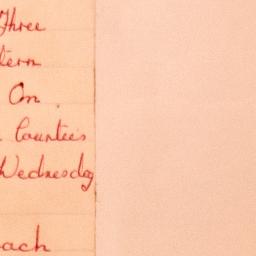 Three
tern
On
Counties
Wednesday
oach